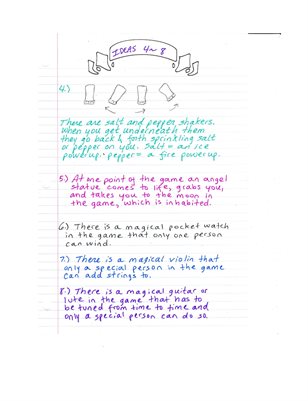 IDEAS 4~8
4.)
There are salt and pepper shakers.
When you get underneath them
they go back & forth sprinkling salt
or pepper on you. Salt = an ice
powerup. pepper = a fire powerup.
5.) At one point of the game an angel
statue comes to life, grabs you,
and takes you to the moon in
the game, which is inhabited.
6.) There is a magical pocket watch
in the game that only one person
can wind.
7.) There is a magical violin that
only a special person in the game
can add strings to.
8.) There is a magical guitar or
lute in the game that has to
be tuned from time to time and
only a special person can do so.